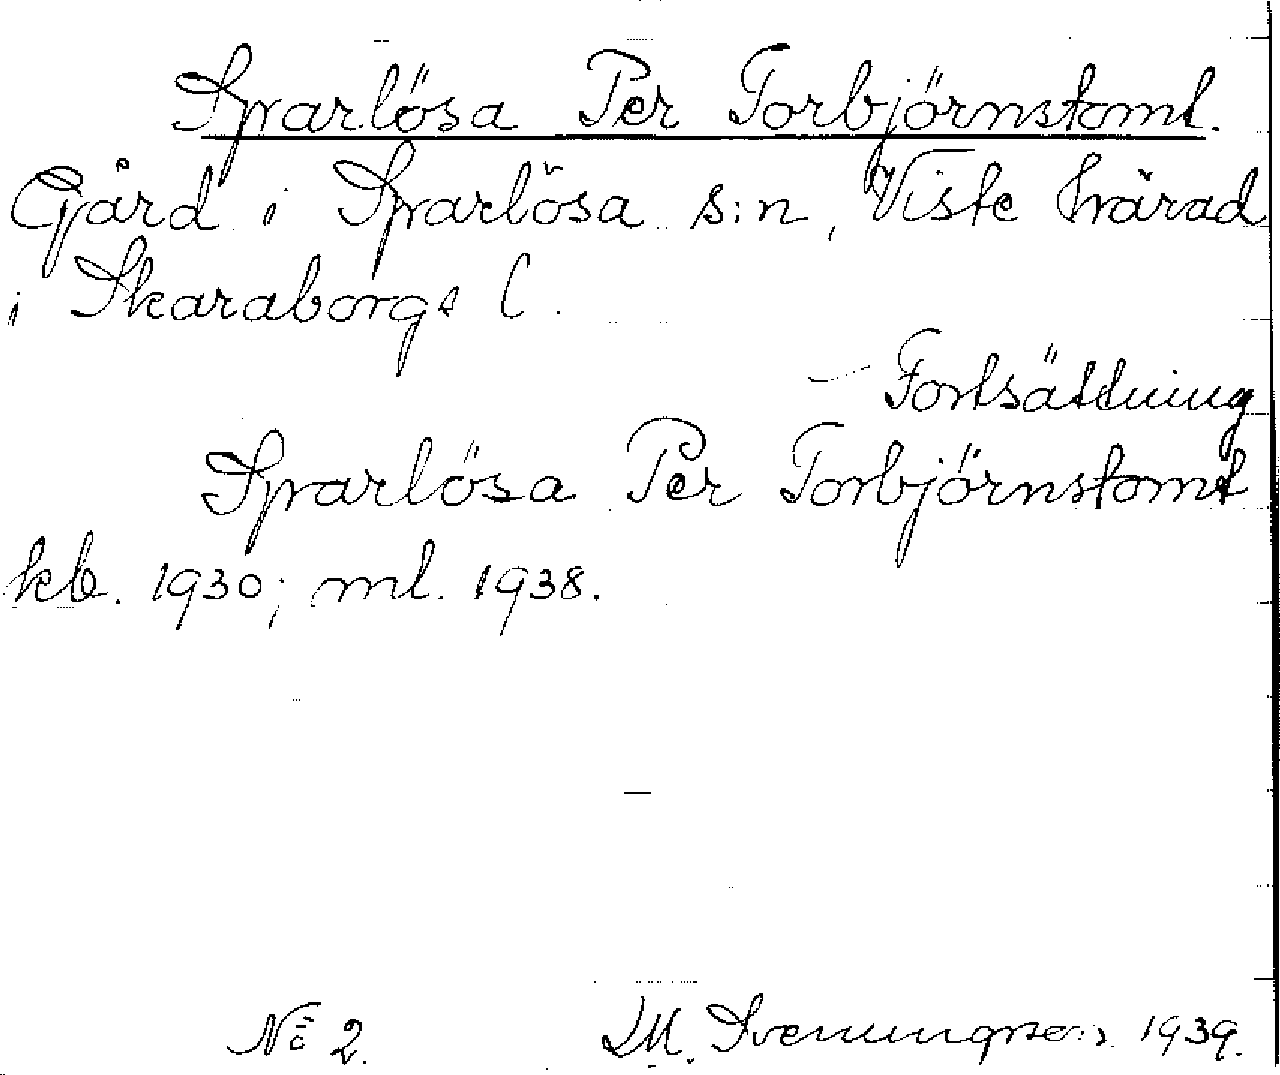 Sparlösa Per Torbjörnstomt.
Gård i Sparlösa s:n, Viste härad
i Skaraborgs l.
Fortsättning
Sparlösa Per Torbjörnstomt
kb. 1930; ml. 1938.
No 2. M. Svenungsson 1939.